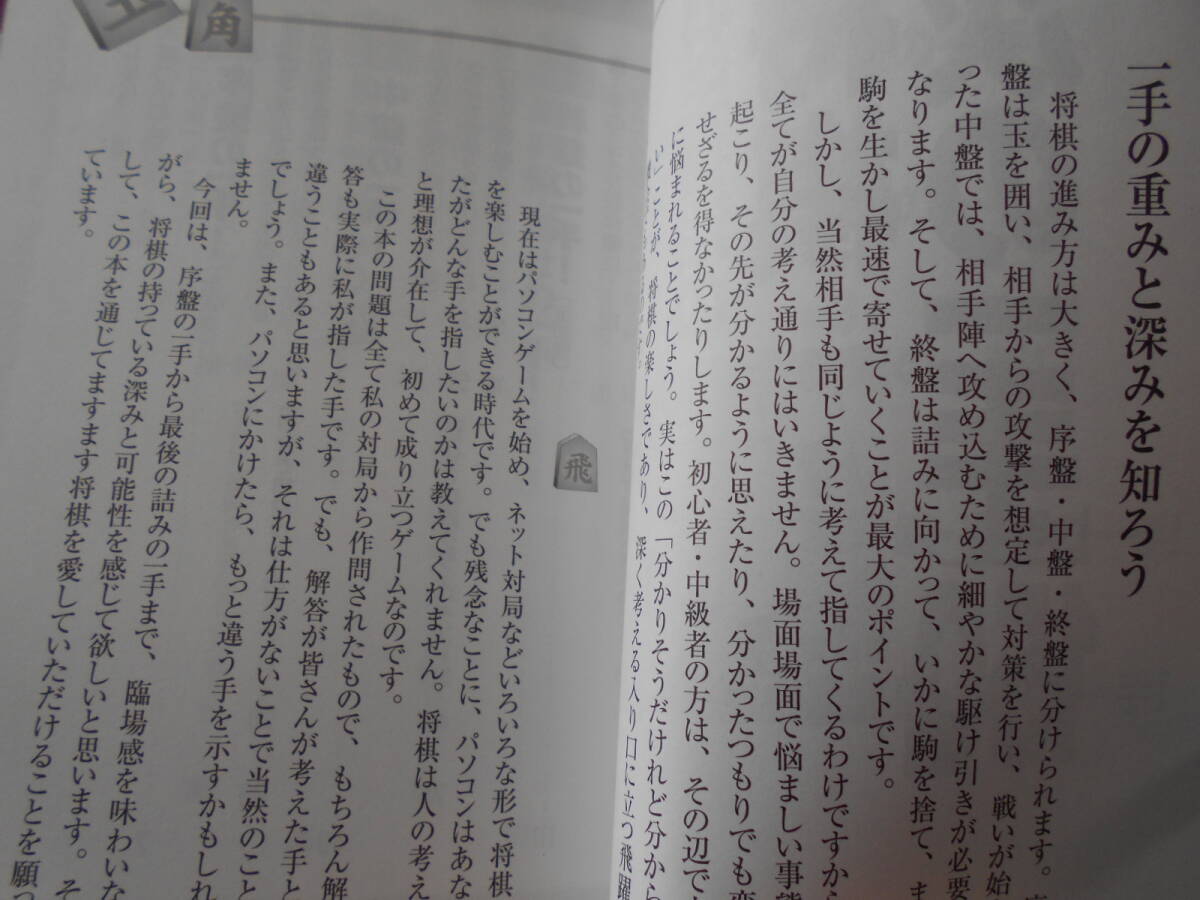 一手の重みと深みを知ろう
将棋の進み方は大きく、序盤・中盤・終盤に分けられます。
盤は玉を囲い、相手からの攻撃を想定して対策を行い、戦いが始
った中盤では、相手陣へ攻め込むために細やかな駆け引きが必要
なります。そして、終盤は詰みに向かって、いかに駒を捨て、ま
駒を生かし最速で寄せていくことが最大のポイントです。
しかし、当然相手も同じように考えて指してくるわけですから
全てが自分の考え通りにはいきません。場面場面で悩ましい事態
起こり、その先が分かるように思えたり、分かったつもりでも変
せざるを得なかったりします。初心者・中級者の方は、その辺で
に悩まれることでしょう。実はこの「分かりそうだけれど分から
い」ことが、将棋の楽しさであり、深く考える入り口に立つ飛躍
玉
角
飛
現在はパソコンゲームを始め、ネット対局などいろいろな形で将棋
を楽しむことができる時代です。でも残念なことに、パソコンはあな
たがどんな手を指したいのかは教えてくれません。将棋は人の考え
と理想が介在して、初めて成り立つゲームなのです。
この本の問題は全て私の対局から作問されたもので、もちろん解
答も実際に私が指した手です。でも、解答が皆さんが考えた手と
違うこともあると思いますが、それは仕方がないことで当然のこと
でしょう。また、パソコンにかけたら、もっと違う手を示すかもしれ
ません。
今回は、序盤の一手から最後の詰みの一手まで、臨場感を味わいな
がら、将棋の持っている深みと可能性を感じて欲しいと思います。そ
して、この本を通じてますます将棋を愛していただけることを願っ
ています。